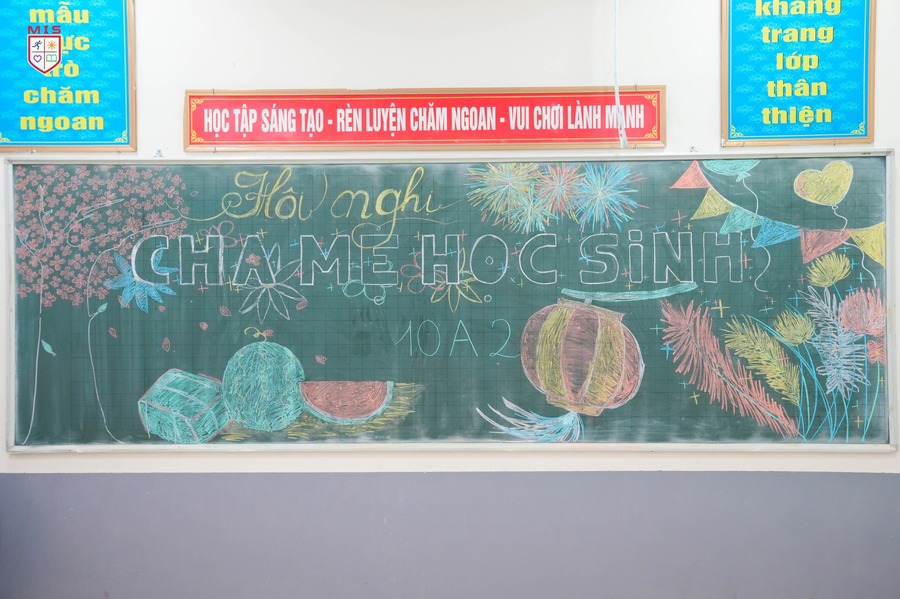 mẫu
MIS
trò
chăm
ngoan
khang
trang
lớp
thân
thiện
HỌC TẬP SÁNG TẠO - RÈN LUYỆN CHĂM NGOAN - VUI CHƠI LÀNH MẠNH
Hội nghị
CHA MẸ HỌC SiNH
10A2